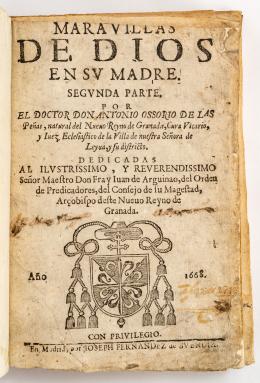 MARAVILLAS
DE DIOS
EN SV MADRE.
SEGVNDA PARTE.
POR
EL DOCTOR DON ANTONIO OSSORIO DE LAS
Peñas, natural del Nuevo Reyno de Granada, Cura Vicario,
y Iuez Eclesiastico de la Villa de nuestra Señora de
Leyva, y su districto.
DEDICADAS
AL ILVSTRISSIMO, Y REVERENDISSIMO
Señor Maestro Don Fray Iuan de Arguinao, del Orden
de Predicadores, del Consejo de su Magestad,
Arçobispo deste Nuevo Reyno de
Granada.
Año 1668.
CON PRIVILEGIO.
En Madrid, por IOSEPH FERNANDEZ de BVENDIA.